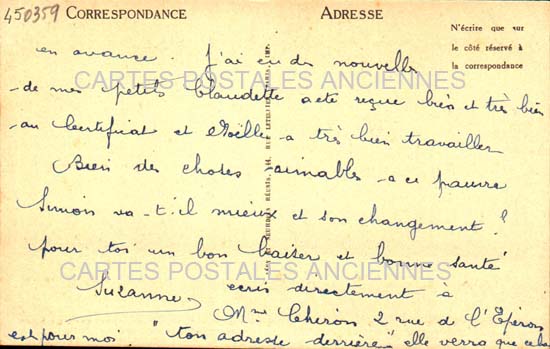 450359
CORRESPONDANCE
ADRESSE
N'écrire que sur
le côté réservé à
la correspondance
en avance. J'ai eu des nouvelles
CARTES POSTALES ANCIENNES
de mes petits Claudette a été reçue bien et très bien
au Certificat et Noëlle a très bien travailler
Bien des choses aimables a ce pauvre
Simon va-t-il mieux et son changement?
pour toi un bon baiser et bonne santé
CARTES POSTALES ANCIENNES
Suzanne
ecris directement à
Mme Chéron 2 rue de l'Eperon
est pour moi "ton adresse derrière" elle verra que cela